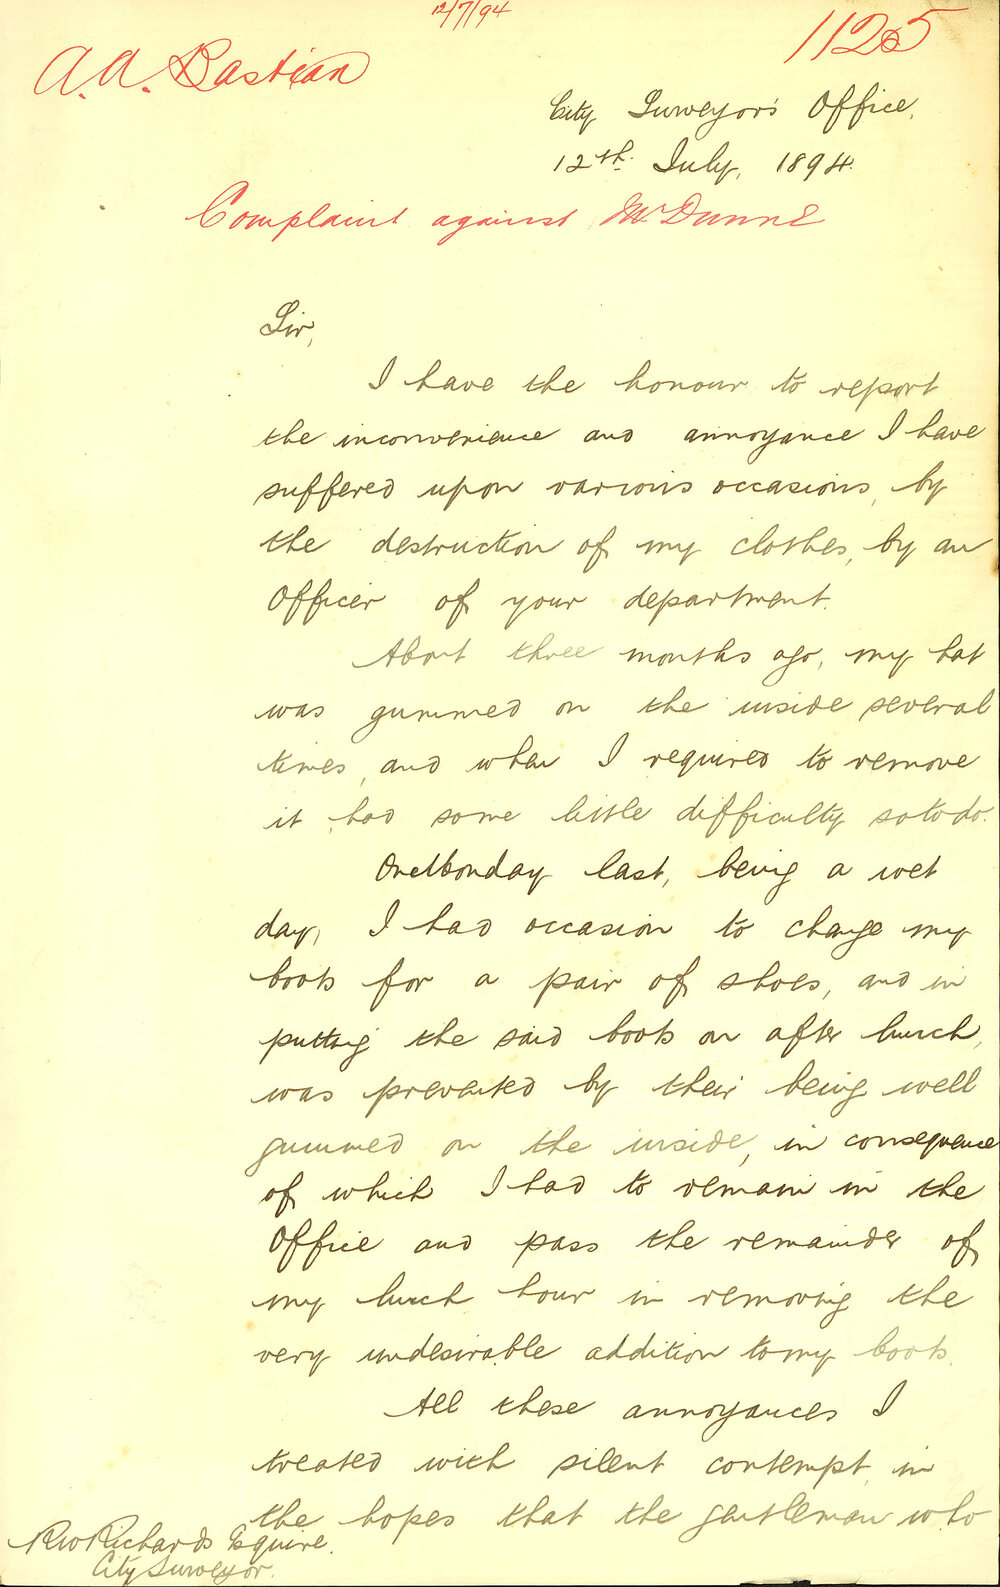 12/7/94
1125
A. A. Bastian
City Surveyor's Office,
12th. July, 1894.
Complaint against Mr Dunne
Sir,
I have the honour to report
the inconvenience and annoyance I have
suffered upon various occasions, by
the destruction of my clothes, by an
Officer of your department.
About three months ago, my hat
was gummed on the inside several
times, and when I required to remove
it had some little difficulty so to do.
On Monday last, being a wet
day, I had occasion to change my
boots for a pair of shoes, and in
putting the said boots on after lunch,
was prevented by their being well
gummed on the inside, in consequence
of which I had to remain in the
Office and pass the remainder of
my lunch hour in removing the
very undesirable addition to my boots.
All these annoyances I
treated with silent contempt, in
the hopes that the gentleman who
RW Richards Esquire.
City Surveyor.